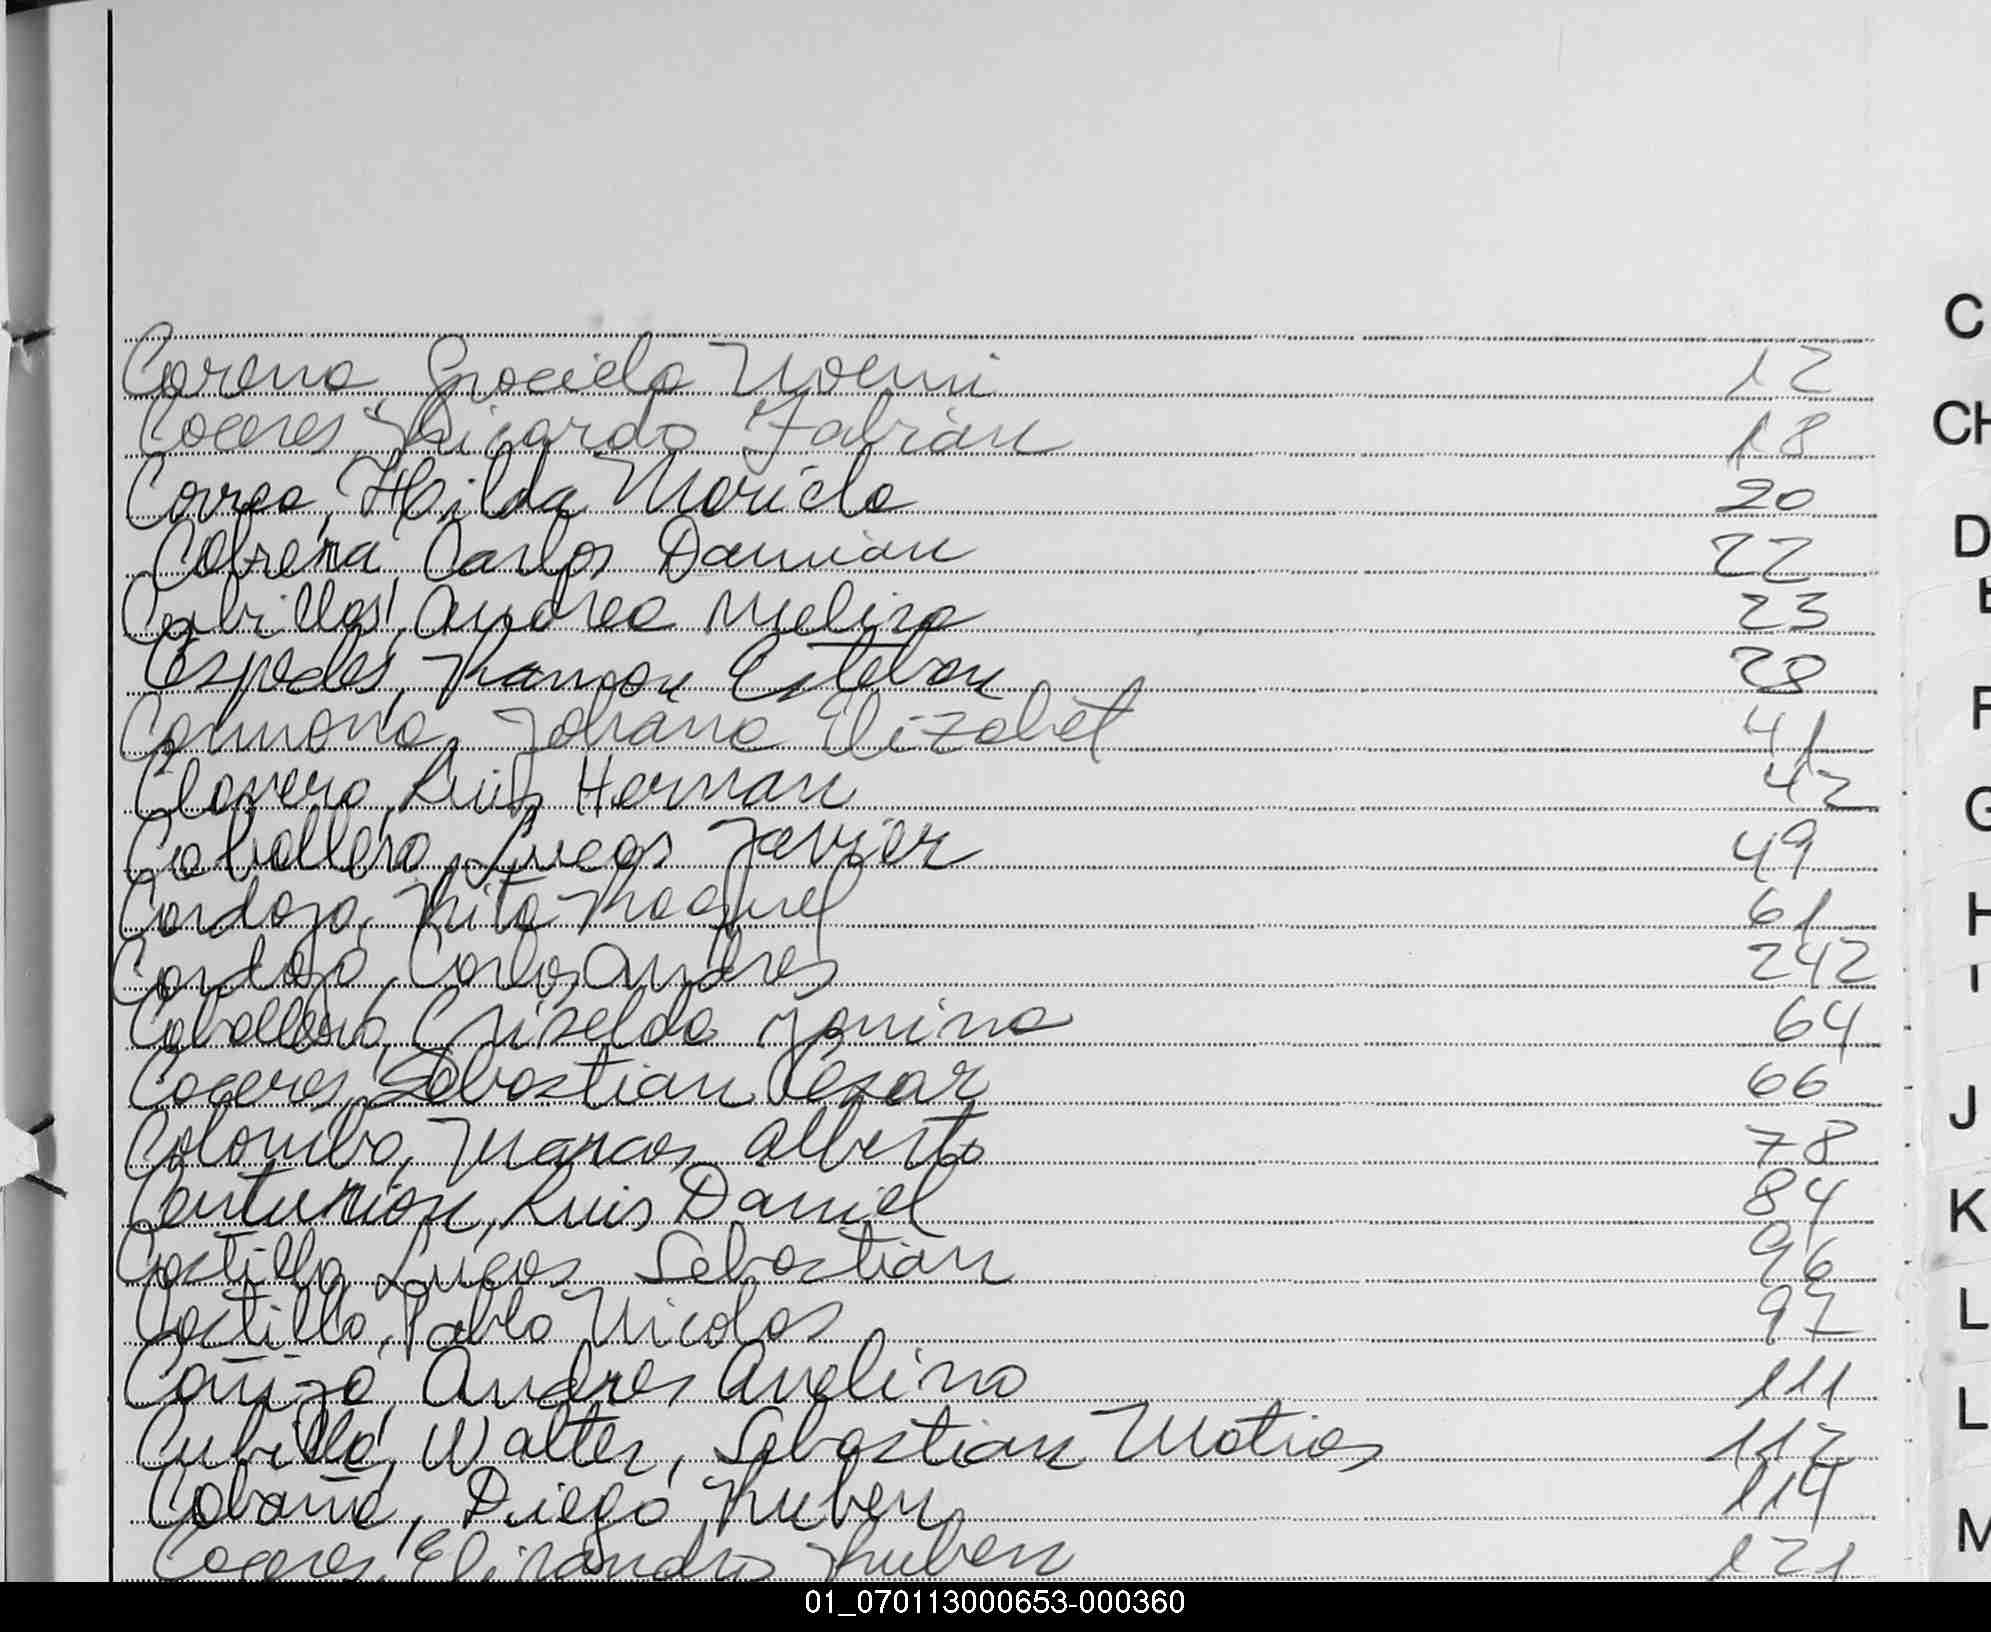 Carena Graciela Noemi 12
Caceres, Ricardo Fabian 18
Correa, Hilda Mariela 20
Cabrera Carlos Damian 22
Cubillas, Andrea Melisa 23
Cespedes, Ramon Esteban 28
Carmona, Johana Elizabet 41
Clavero, Luis Hernan 42
Caballero, Lucas Javier 49
Cardozo, Rita Raquel 61
Cardozo, Carlos Andres 242
Caballero, Griselda Yanina 64
Caceres, Sebastian Cesar 66
Colombo, Marcos Alberto 78
Centurion, Luis Daniel 84
Castillo, Lucas Sebastián 96
Castillo, Pablo Nicolas 97
Cañiza, Andres Avelino 111
Cubilla, Walter, Sebastian Matias 112
Cabaña, Diego Ruben 114
Caceres, Elisandro Ruben 121
C
CH
D
E
F
G
H
I
J
K
L
L
M
01_070113000653-000360